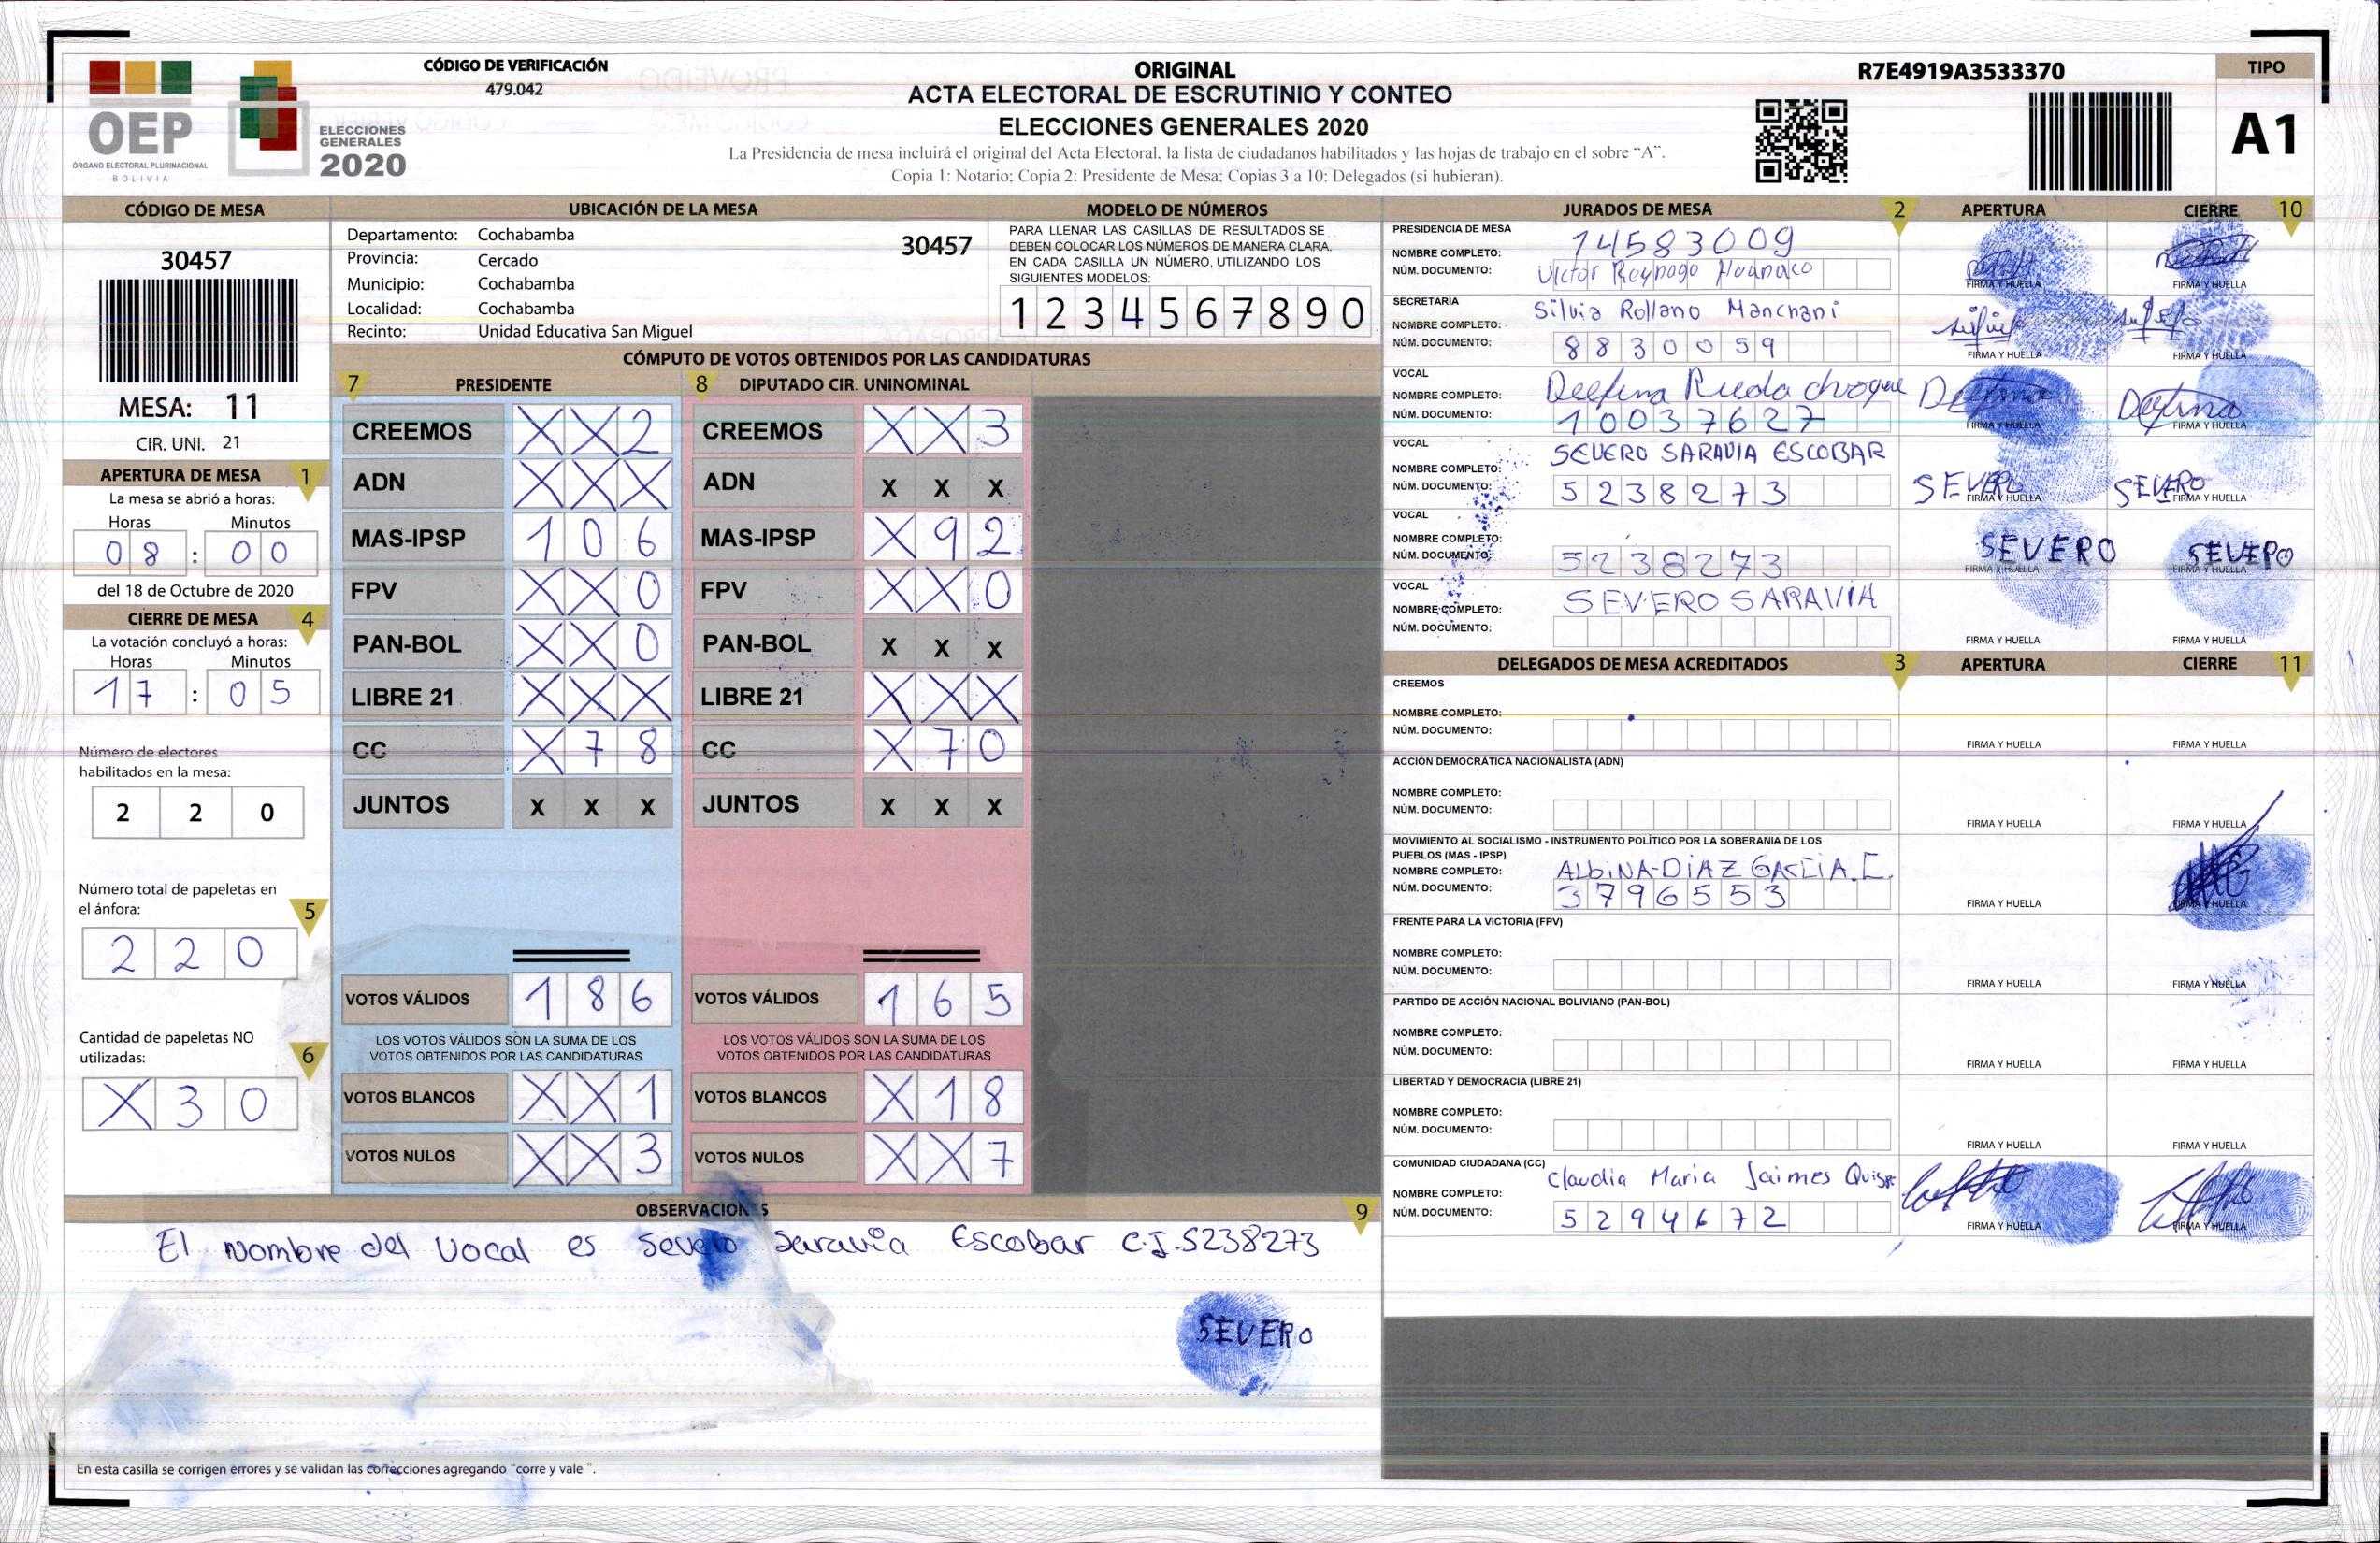 CÓDIGO DE VERIFICACIÓN
479.042
OEP
ÓRGANO ELECTORAL PLURINACIONAL
BOLIVIA
ELECCIONES
GENERALES
2020
ORIGINAL
ACTA ELECTORAL DE ESCRUTINIO Y CONTEO
ELECCIONES GENERALES 2020
La Presidencia de mesa incluirá el original del Acta Electoral, la lista de ciudadanos habilitados y las hojas de trabajo en el sobre "A".
Copia 1: Notario; Copia 2: Presidente de Mesa; Copias 3 a 10: Delegados (si hubieran).
R7E4919A3533370
TIPO
A1
CÓDIGO DE MESA
30457
MESA: 11
CIR. UNI. 21
APERTURA DE MESA 1
La mesa se abrió a horas:
Horas Minutos
08 : 00
del 18 de Octubre de 2020
CIERRE DE MESA 4
La votación concluyó a horas:
Horas Minutos
17 : 05
Número de electores
habilitados en la mesa:
2 2 0
Número total de papeletas en
el ánfora: 5
2 2 0
Cantidad de papeletas NO
utilizadas: 6
X 3 0
UBICACIÓN DE LA MESA
Departamento: Cochabamba 30457
Provincia: Cercado
Municipio: Cochabamba
Localidad: Cochabamba
Recinto: Unidad Educativa San Miguel
MODELO DE NÚMEROS
PARA LLENAR LAS CASILLAS DE RESULTADOS SE
DEBEN COLOCAR LOS NÚMEROS DE MANERA CLARA.
EN CADA CASILLA UN NÚMERO, UTILIZANDO LOS
SIGUIENTES MODELOS:
1 2 3 4 5 6 7 8 9 0
CÓMPUTO DE VOTOS OBTENIDOS POR LAS CANDIDATURAS
7 PRESIDENTE 8 DIPUTADO CIR. UNINOMINAL
CREEMOS X X 2 CREEMOS X X 3
ADN X X X ADN X X X
MAS-IPSP 1 0 6 MAS-IPSP X 9 2
FPV X X 0 FPV X X 0
PAN-BOL X X 0 PAN-BOL X X X
LIBRE 21 X X X LIBRE 21 X X X
CC X 7 8 CC X 7 0
JUNTOS X X X JUNTOS X X X
VOTOS VÁLIDOS 1 8 6 VOTOS VÁLIDOS 1 6 5
LOS VOTOS VÁLIDOS SON LA SUMA DE LOS
VOTOS OBTENIDOS POR LAS CANDIDATURAS
LOS VOTOS VÁLIDOS SON LA SUMA DE LOS
VOTOS OBTENIDOS POR LAS CANDIDATURAS
VOTOS BLANCOS X X 1 VOTOS BLANCOS X 1 8
VOTOS NULOS X X 3 VOTOS NULOS X X 7
OBSERVACIONES 9
El nombre del Vocal es Severo Saravia Escobar C.I. 5238273
SEVERO
En esta casilla se corrigen errores y se validan las correcciones agregando "corre y vale".
JURADOS DE MESA 2 APERTURA CIERRE 10
PRESIDENCIA DE MESA
14583009
NOMBRE COMPLETO:
NÚM. DOCUMENTO: Victor
FIRMA Y HUELLA FIRMA Y HUELLA
SECRETARÍA
NOMBRE COMPLETO: Silvia Rollano Manchani
NÚM. DOCUMENTO: 8830059
FIRMA Y HUELLA FIRMA Y HUELLA
VOCAL
NOMBRE COMPLETO: Delfina Rueda choque
NÚM. DOCUMENTO: 10037627
Delfina Delfina
FIRMA Y HUELLA FIRMA Y HUELLA
VOCAL
NOMBRE COMPLETO: SEVERO SARAVIA ESCOBAR
NÚM. DOCUMENTO: 5238273
SEVERO SEVERO
FIRMA Y HUELLA FIRMA Y HUELLA
VOCAL
NOMBRE COMPLETO:
NÚM. DOCUMENTO: 5238273
SEVERO SEVERO
FIRMA Y HUELLA FIRMA Y HUELLA
VOCAL
NOMBRE COMPLETO: SEVERO SARAVIA
NÚM. DOCUMENTO:
FIRMA Y HUELLA FIRMA Y HUELLA
DELEGADOS DE MESA ACREDITADOS 3 APERTURA CIERRE 11
CREEMOS
NOMBRE COMPLETO:
NÚM. DOCUMENTO:
FIRMA Y HUELLA FIRMA Y HUELLA
ACCIÓN DEMOCRÁTICA NACIONALISTA (ADN)
NOMBRE COMPLETO:
NÚM. DOCUMENTO:
FIRMA Y HUELLA FIRMA Y HUELLA
MOVIMIENTO AL SOCIALISMO - INSTRUMENTO POLÍTICO POR LA SOBERANIA DE LOS
PUEBLOS (MAS - IPSP)
NOMBRE COMPLETO: ALBINA DIAZ
NÚM. DOCUMENTO: 3796553
FIRMA Y HUELLA FIRMA Y HUELLA
FRENTE PARA LA VICTORIA (FPV)
NOMBRE COMPLETO:
NÚM. DOCUMENTO:
FIRMA Y HUELLA FIRMA Y HUELLA
PARTIDO DE ACCIÓN NACIONAL BOLIVIANO (PAN-BOL)
NOMBRE COMPLETO:
NÚM. DOCUMENTO:
FIRMA Y HUELLA FIRMA Y HUELLA
LIBERTAD Y DEMOCRACIA (LIBRE 21)
NOMBRE COMPLETO:
NÚM. DOCUMENTO:
FIRMA Y HUELLA FIRMA Y HUELLA
COMUNIDAD CIUDADANA (CC)
NOMBRE COMPLETO: Claudia Maria Jaimes Quispe
NÚM. DOCUMENTO: 5294672
FIRMA Y HUELLA FIRMA Y HUELLA